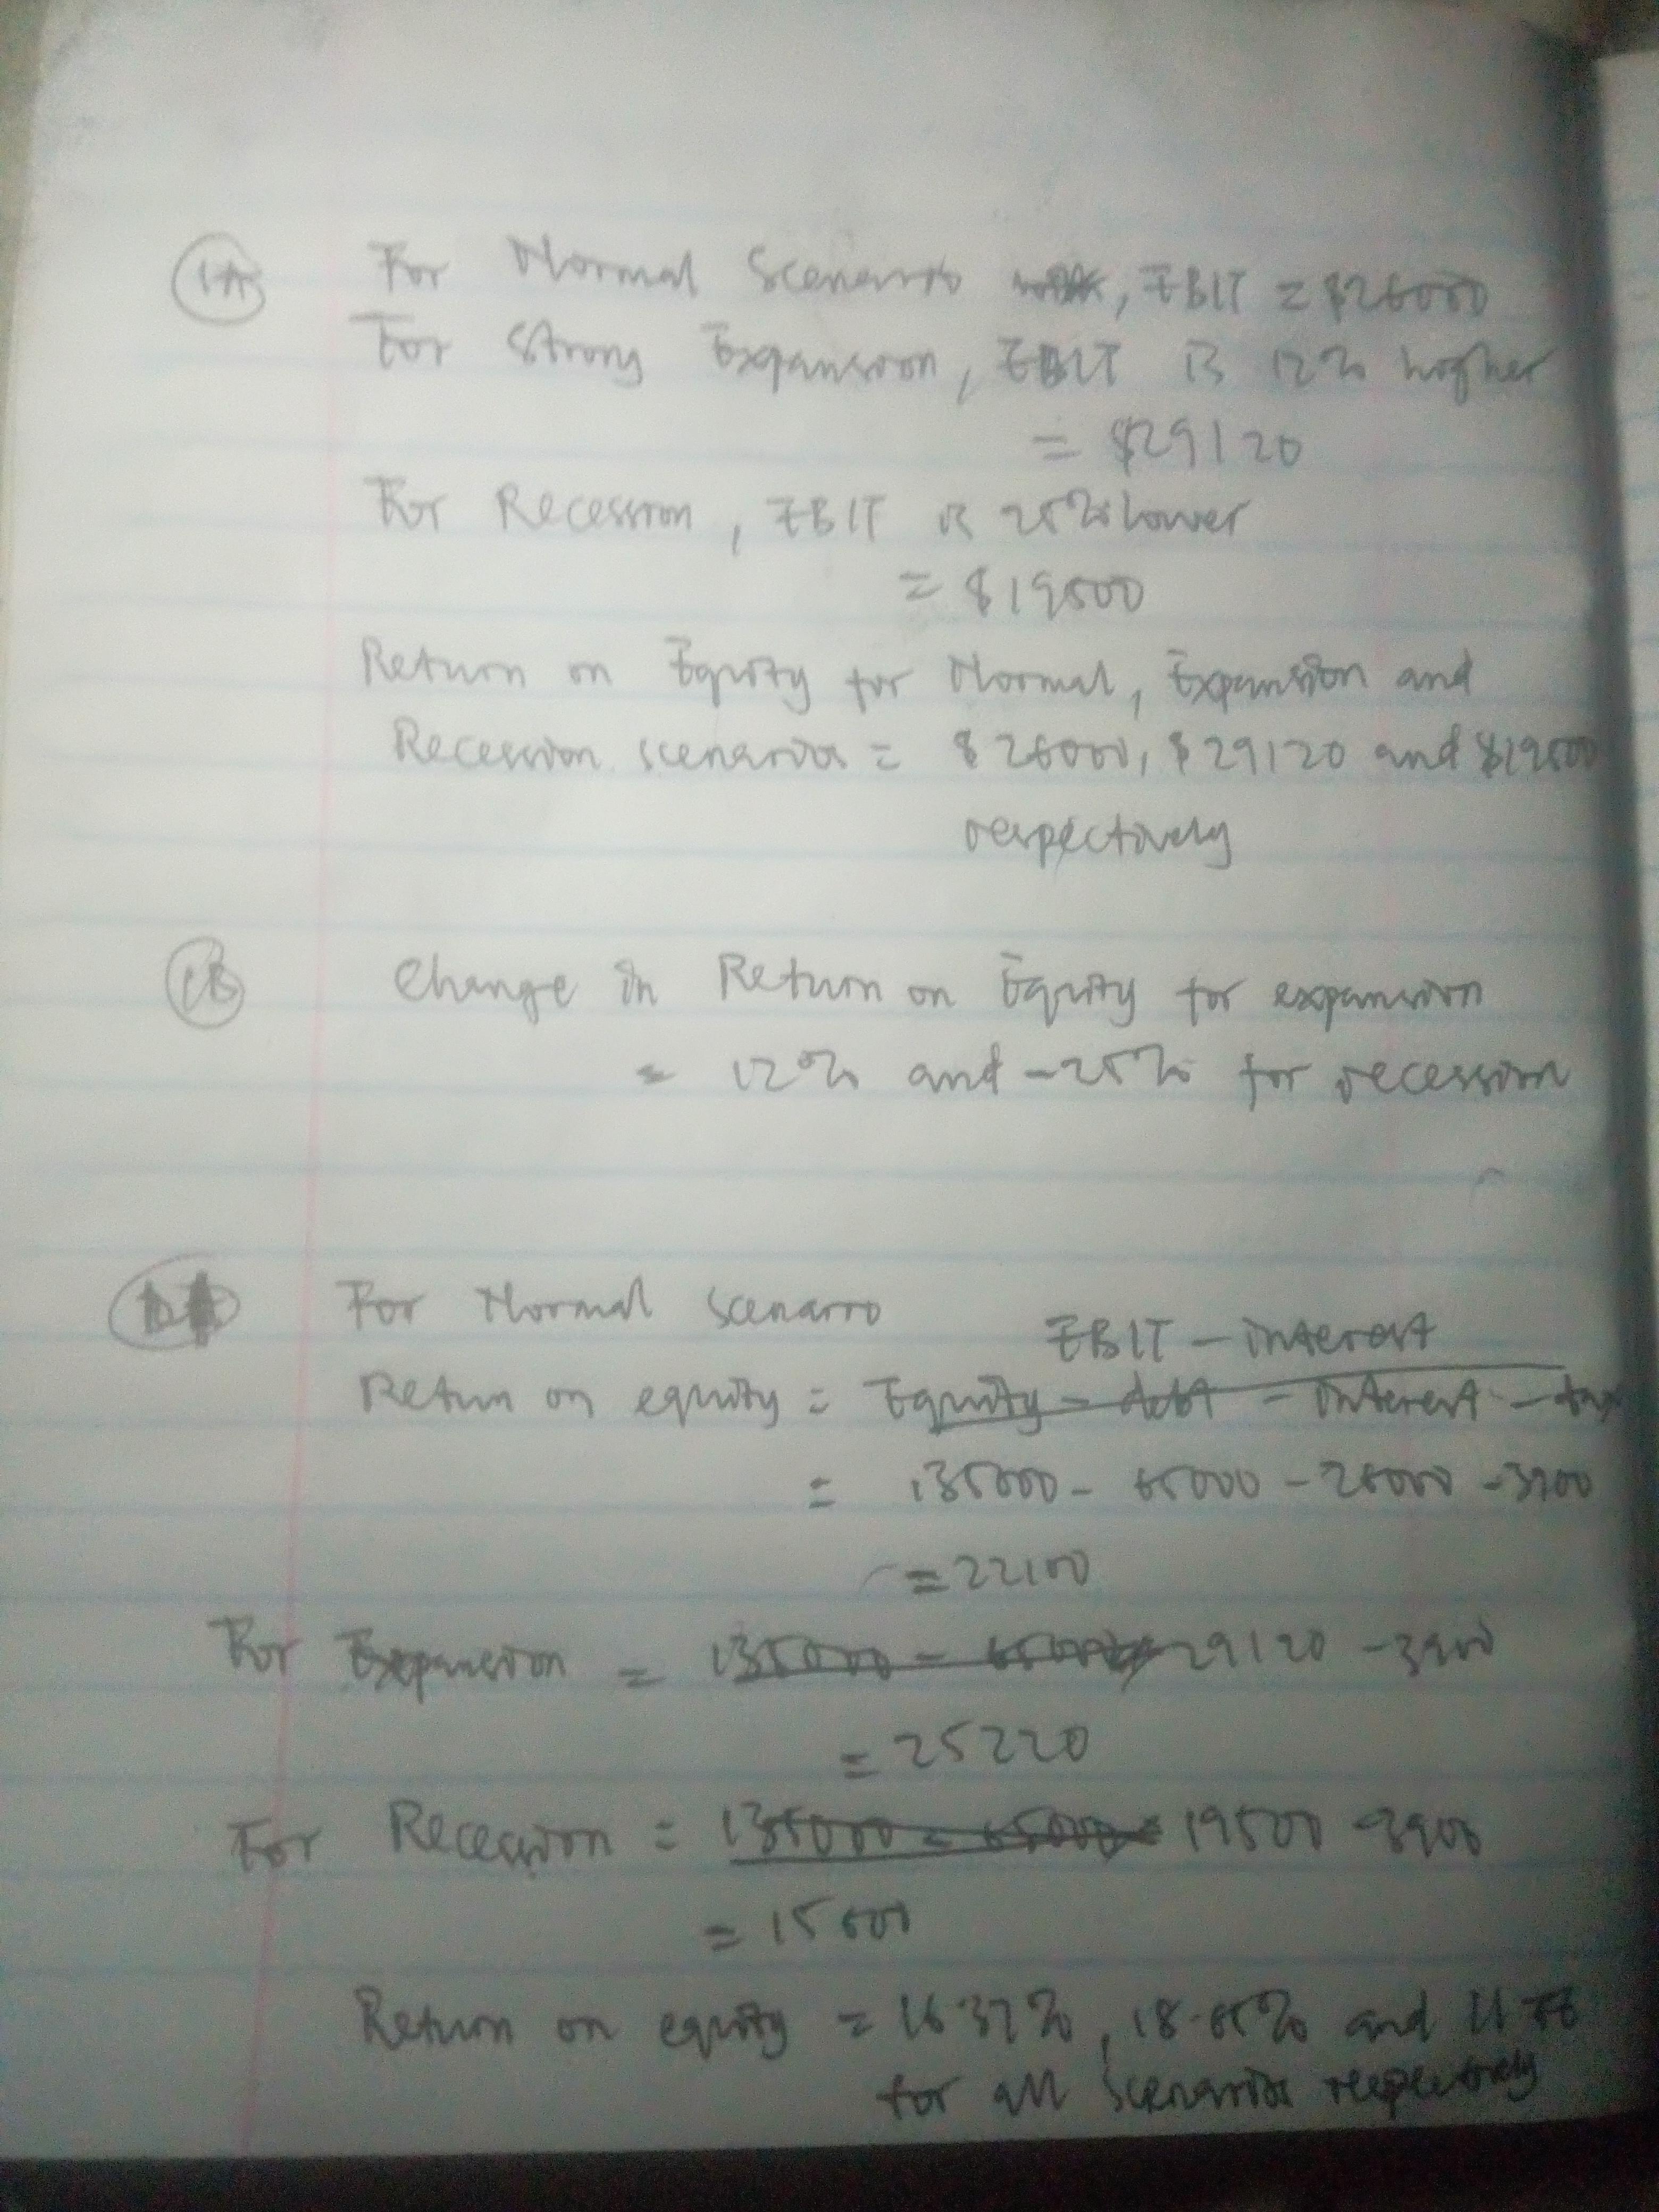 1A For Normal Scenario, EBIT = $26000
For Strong Expansion, EBIT is 12% higher
= $29120
For Recession, EBIT is 25% lower
= $19500
Return on Equity for Normal, Expansion and
Recession scenarios = $26000, $29120 and $19500
respectively
1B Change in Return on Equity for expansion
= 12% and -25% for recession
For Normal Scenario
EBIT - interest
Return on equity = Equity - debt - interest - tax
= 135000 - 65000 - 26000 - 3900
= 22100
For Expansion = 135000 - 65000 29120 - 3900
= 25220
For Recession = 135000 - 65000 19500 - 3900
= 15600
Return on equity = 16.37%, 18.68% and
for all scenarios respectively